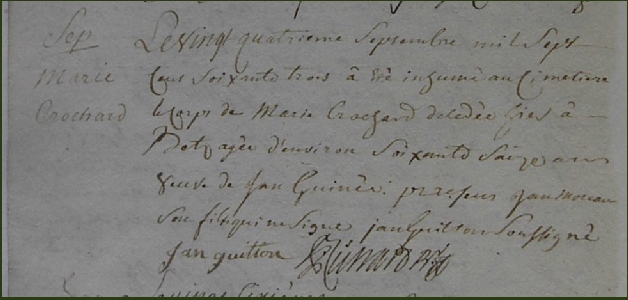 Sep
Marie
Crochard
Le vingt quatrieme Septembre mil Sept
Cens Soixante trois à été inhumé au Cimetiere
le Corps de Marie Crochard decedée hier à
agée d'environ Soixante Saize ans
veuve de Jan Guinée. presens Jan Moreau
Son fils qui ne Signe, jan Guitton Soussigné
Jan guitton